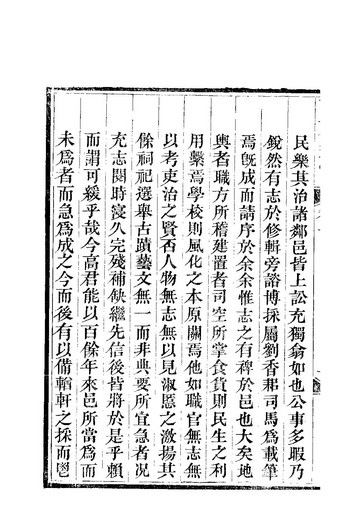 民樂其治諸鄰邑皆上訟充獨翕如也公事多暇乃
銳然有志於修輯旁諮博採屬劉香郡司馬爲載筆
焉旣成而請序於余余惟志之有裨於邑也大矣地
輿者職方所稽建置者司空所掌食貨則民生之利
用繫焉學校則風化之本原關焉他如職官無志無
以考吏治之賢否人物無志無以見淑慝之激揚其
餘祠祀選舉古蹟藝文無一而非典要所宜急者况
充志閱時寖久完殘補缺繼先信後皆將於是乎賴
而謂可緩乎哉今高君能以百餘年來邑所當爲而
未爲者而急爲成之今而後有以備輶軒之採而鬯